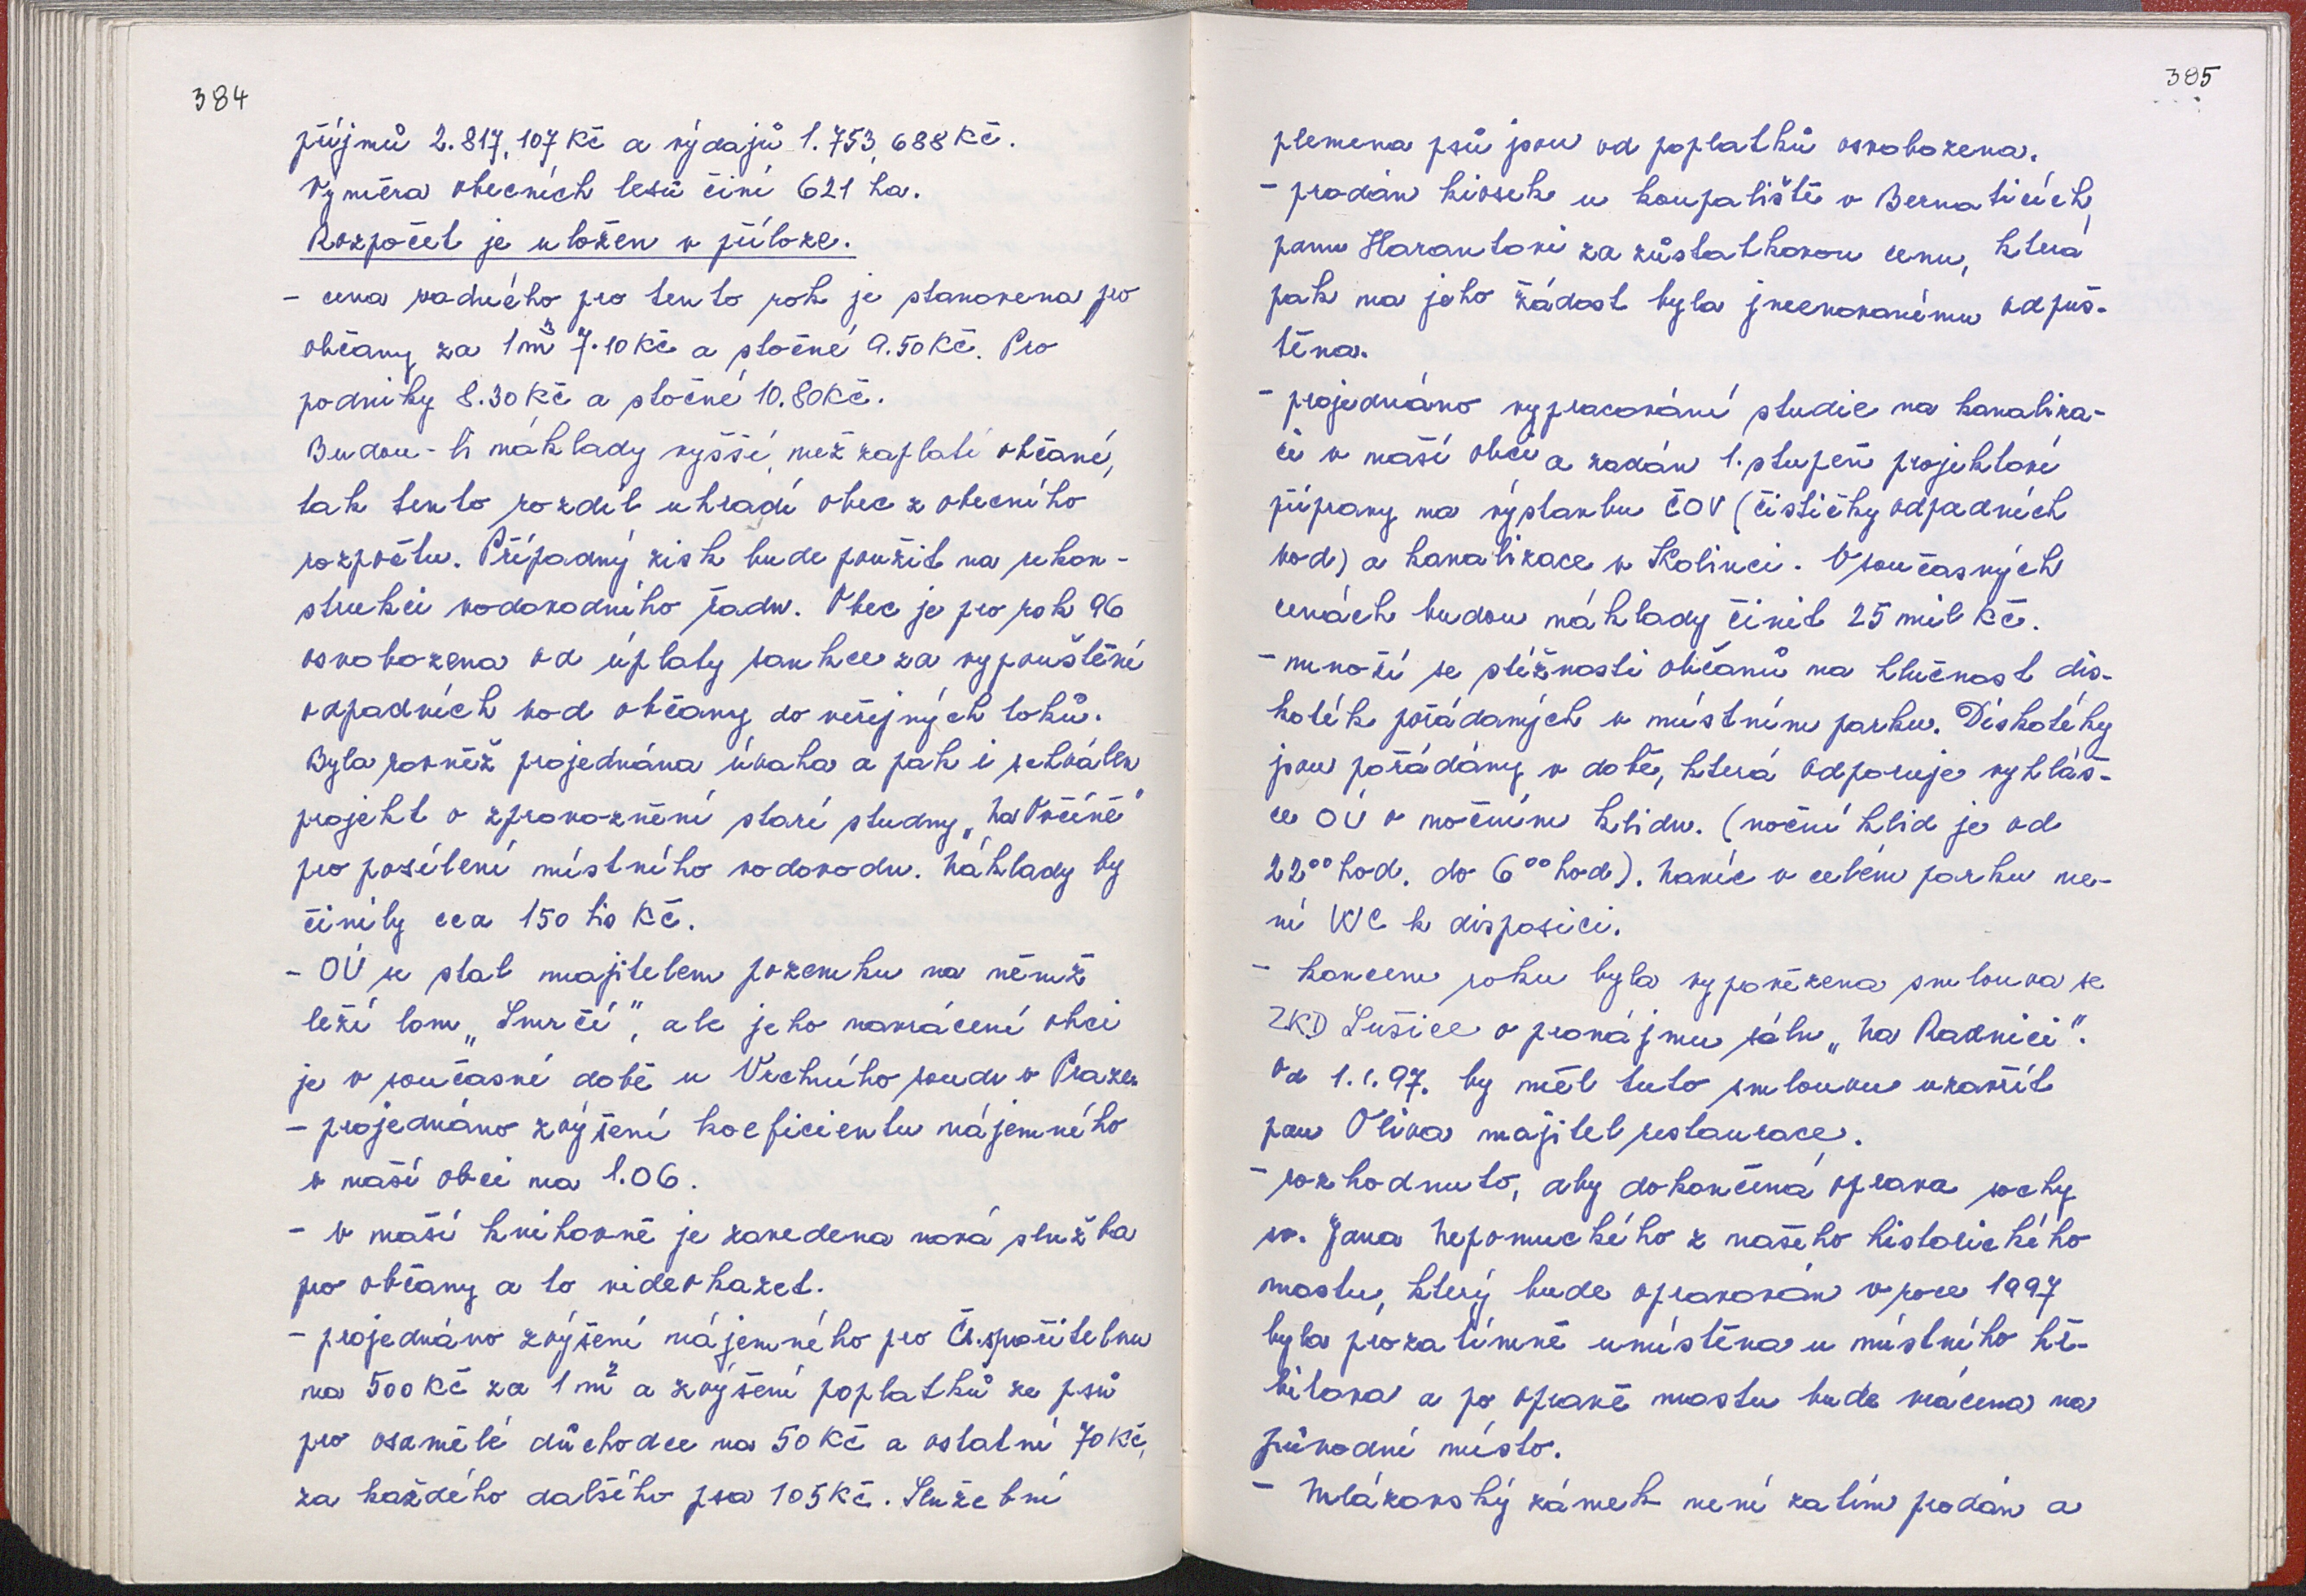 384
příjmů 2.817,107 Kč a výdajů 1.753,688 Kč.
Výměra obecních lesů činí 621 ha.
Rozpočet je uložen v příloze.
- cena vodného pro tento rok je stanovena pro
občany za 1m³ 7.10 Kč a stočné 9.50 Kč. Pro
podniky 8.30 Kč a stočné 10.80 Kč.
Budou-li náklady vyšší, než zaplatí občané,
tak tento rozdíl uhradí obec z obecního
rozpočtu. Případný zisk bude použit na rekon-
strukci vodovodního řadu. Obec je pro rok 96
osvobozena od úplaty sankce za vypouštění
odpadních vod občany do veřejných toků.
Byla rovněž projednána úvaha a pak i schválen
projekt o zprovoznění staré studny „Na Vočíně"
pro posílení místního vodovodu. Náklady by
činily cca 150 tis Kč.
- OÚ se stal majitelem pozemku na němž
leží lom „Smrčí", ale jeho navrácení obci
je v současné době u Vrchního soudu v Praze.
- projednáno zvýšení koeficientu nájemného
v naší obci na 1.06.
- v naší knihovně je zavedena nová služba
pro občany a to videokazet.
- projednáno zvýšení nájemného pro Čs.spořitelnu
na 500 Kč za 1 m² a zvýšení poplatků ze psů
pro osamělé důchodce na 50 Kč a ostatní 70 Kč,
za každého dalšího psa 105 Kč. Služební
385
plemena psů jsou od poplatků osvobozena.
- prodán kiosek u koupaliště v Bernaticích
panu Harantovi za zůstatkovou cenu, která
pak na jeho žádost byla jmenovanému odpuš-
těna.
- projednáno vypracování studie na kanaliza-
ci v naší obci a zadán 1. stupeň projektové
přípravy na výstavbu ČOV (čističky odpadních
vod) a kanalizace v Kolinci. V současných
cenách budou náklady činit 25 mil Kč.
- množí se stížnosti občanů na hlučnost dis-
koték pořádaných v místním parku. Diskotéky
jsou pořádány v době, která odporuje vyhláš-
ce OÚ o nočním klidu. (noční klid je od
22⁰⁰ hod. do 6⁰⁰ hod). Navíc v celém parku ne-
ní WC k disposici.
- koncem roku byla vypovězena smlouva se
ZKD Sušice o pronájmu sálu „Na Radnici".
Od 1.1.97. by měl tuto smlouvu uzavřít
pan Oliva majitel restaurace.
- rozhodnuto, aby dokončená oprava sochy
sv. Jana Nepomuckého z našeho historického
mostu, který bude opravován v roce 1997
byla prozatímně umístěna u místního hř-
bitova a po opravě mostu bude vrácena na
původní místo.
- Mlázovský zámek není zatím prodán a